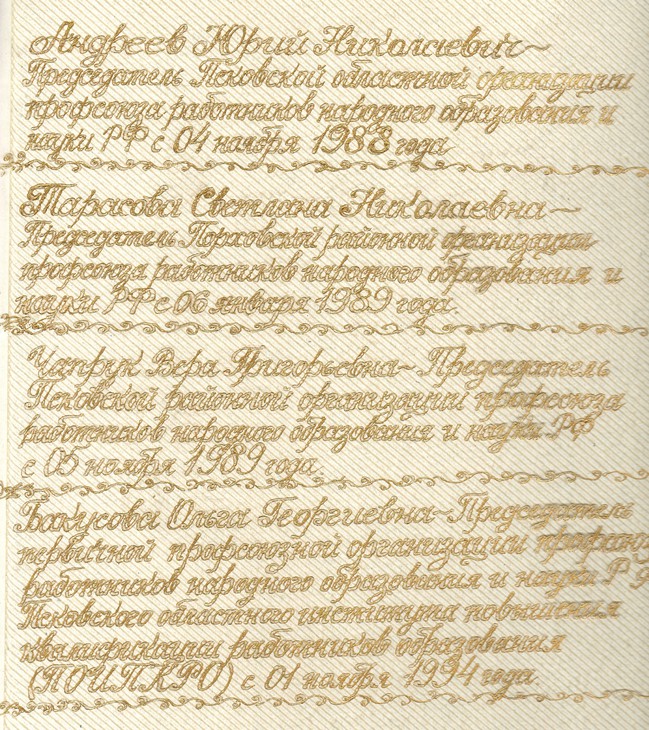 Андреев Юрий Николаевич ~
Председатель Псковской областной организации
профсоюза работников народного образования и
науки РФ с 04 ноября 1988 года.
Тарасова Светлана Николаевна ~
Председатель Порховской районной организации
профсоюза работников народного образования и
науки РФ с 06 января 1989 года.
Чапрук Вера Григорьевна ~ Председатель
Псковской районной организации профсоюза
работников народного образования и науки РФ
с 05 ноября 1989 года.
Бакусова Ольга Георгиевна ~ Председатель
первичной профсоюзной организации профсоюз
работников народного образования и науки РФ
Псковского областного института повышения
квалификации работников образования
(ПОИПКРО) с 01 ноября 1994 года.